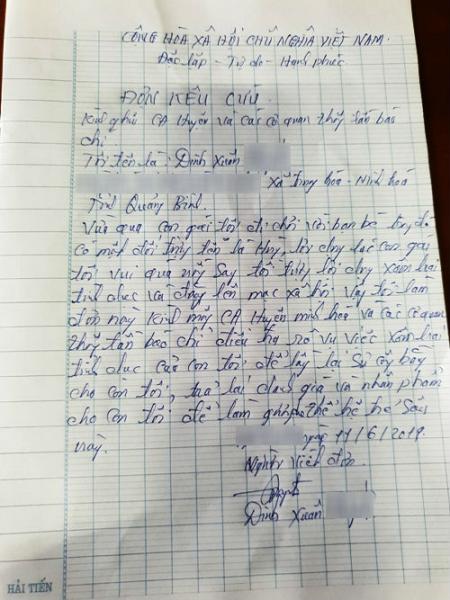 CÔNG HÒA XÃ HỘI CHỦ NGHĨA VIỆT NAM.
Độc lập - Tự do - Hạnh phúc
ĐƠN KÊU CỨU.
Kính gửi CA Huyện và các cơ quan thông tấn báo
chí
Tôi tên là Đinh Xuân
xã Trọng hóa - Minh hoá
Tỉnh Quảng Bình.
Vừa qua con gái tôi đi chơi với bạn bè
có một đối tên là Thuy, lợi dụng lúc con gái
tôi vui quá say lợi dụng xâm hại
tình dục và đăng lên mạc xã hội vậy tôi làm
đơn này Kính CA Huyện minh hoá và các cơ quan
thông tấn báo chí điều tra rõ vụ việc xâm hại
tình dục của con tôi để lấy lại sự công bằng
cho con tôi, trả lại danh giá và nhân phẩm
cho con tôi để làm gương thế hệ sau
này.
ngày 11/6/2019.
Người viết đơn.
Đinh Xuân
HẢI TIẾN